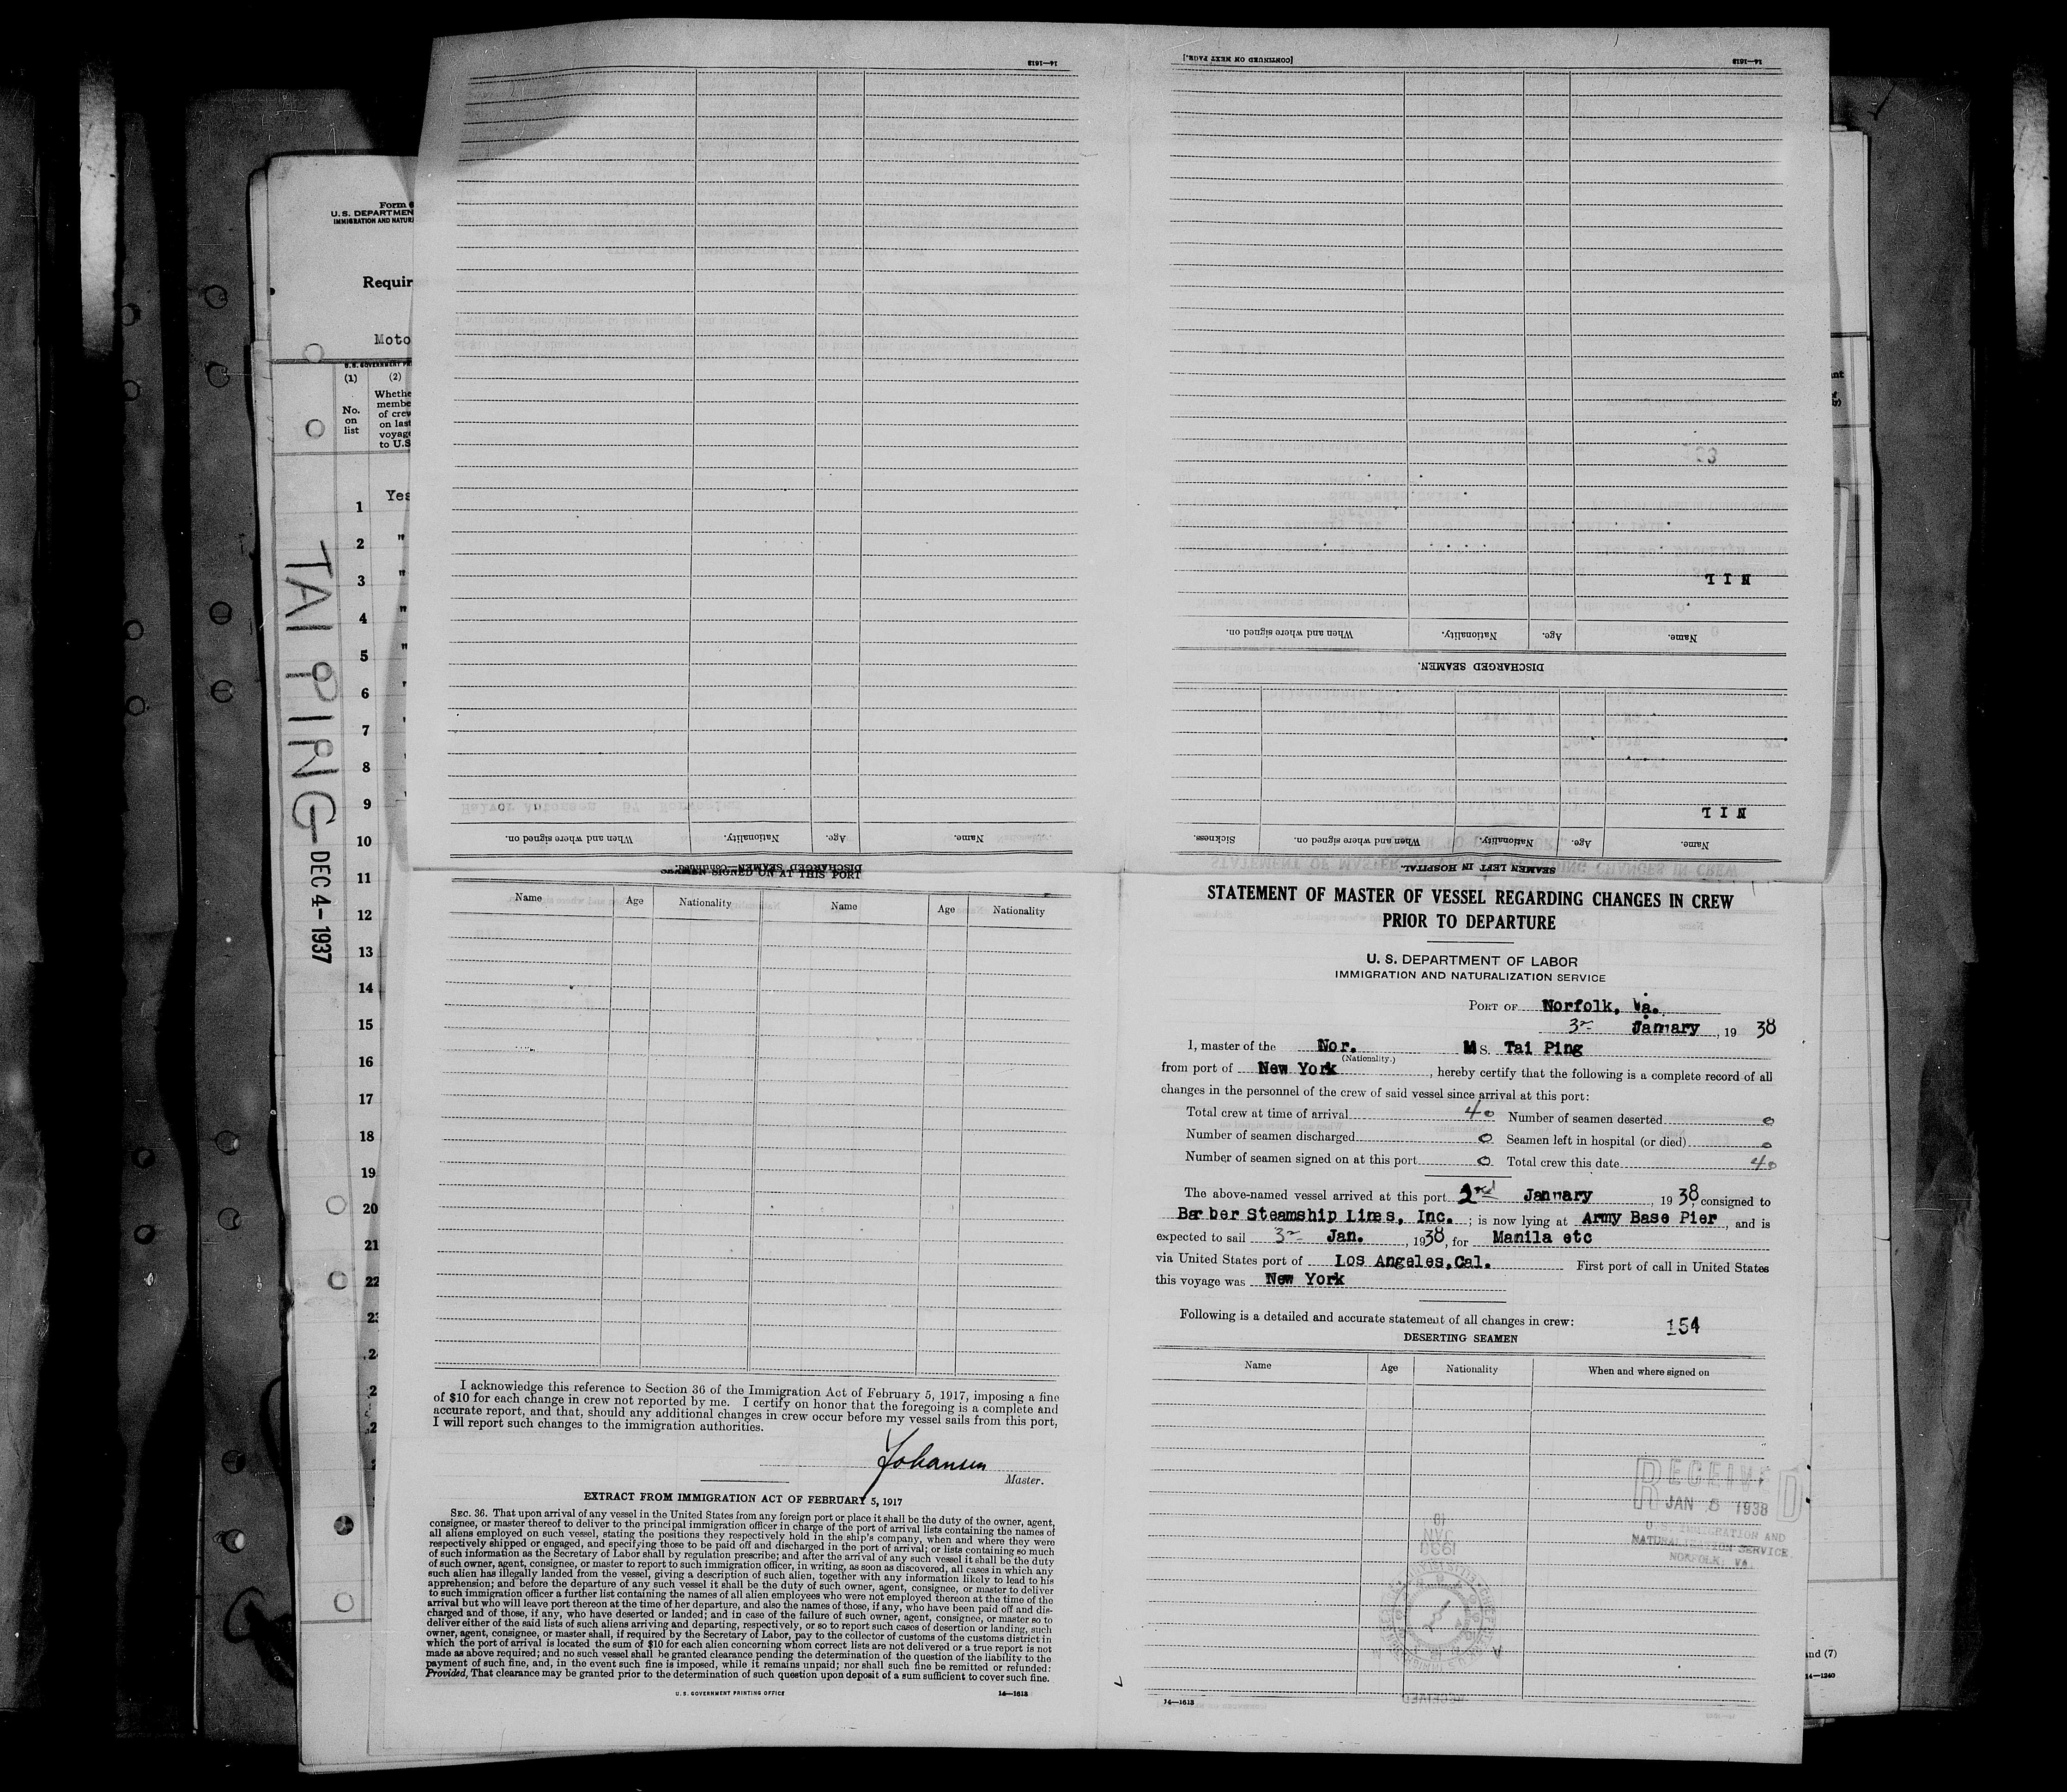 14—1613
[CONTINUED ON NEXT PAGE.]
14—1613
NIL
Name.
Age.
Nationality.
When and where signed on.
DISCHARGED SEAMEN.
NIL
Name.
Age.
Nationality.
When and where signed on.
Sickness.
SEAMEN LEFT IN HOSPITAL.
Name.
Age.
Nationality.
When and where signed on.
DISCHARGED SEAMEN—Continued.
U. S. DEPARTMEN
Requir
Moto
(1)
(2)
No.
on
list
Whethe
membe
of crew
on last
voyage
to U.S
Yes
1
2 "
3 "
4 "
5 "
6
7
8
9
10
11
12
13
14
15
16
17
18
19
20
21
22
TAI PING
DEC 4-1937
SEAMEN SIGNED ON AT THIS PORT
Name Age Nationality Name Age Nationality
I acknowledge this reference to Section 36 of the Immigration Act of February 5, 1917, imposing a fine
of $10 for each change in crew not reported by me. I certify on honor that the foregoing is a complete and
accurate report, and that, should any additional changes in crew occur before my vessel sails from this port,
I will report such changes to the immigration authorities.
Johansen
Master.
EXTRACT FROM IMMIGRATION ACT OF FEBRUARY 5, 1917
SEC. 36. That upon arrival of any vessel in the United States from any foreign port or place it shall be the duty of the owner, agent,
consignee, or master thereof to deliver to the principal immigration officer in charge of the port of arrival lists containing the names of
all aliens employed on such vessel, stating the positions they respectively hold in the ship's company, when and where they were
respectively shipped or engaged, and specifying those to be paid off and discharged in the port of arrival; or lists containing so much
of such information as the Secretary of Labor shall by regulation prescribe; and after the arrival of any such vessel it shall be the duty
of such owner, agent, consignee, or master to report to such immigration officer, in writing, as soon as discovered, all cases in which any
such alien has illegally landed from the vessel, giving a description of such alien, together with any information likely to lead to his
apprehension; and before the departure of any such vessel it shall be the duty of such owner, agent, consignee, or master to deliver
to such immigration officer a further list containing the names of all alien employees who were not employed thereon at the time of the
arrival but who will leave port thereon at the time of her departure, and also the names of those, if any, who have been paid off and dis-
charged and of those, if any, who have deserted or landed; and in case of the failure of such owner, agent, consignee, or master so to
deliver either of the said lists of such aliens arriving and departing, respectively, or so to report such cases of desertion or landing, such
owner, agent, consignee, or master shall, if required by the Secretary of Labor, pay to the collector of customs of the customs district in
which the port of arrival is located the sum of $10 for each alien concerning whom correct lists are not delivered or a true report is not
made as above required; and no such vessel shall be granted clearance pending the determination of the question of the liability to the
payment of such fine, and, in the event such fine is imposed, while it remains unpaid; nor shall such fine be remitted or refunded:
Provided, That clearance may be granted prior to the determination of such question upon deposit of a sum sufficient to cover such fine.
U. S. GOVERNMENT PRINTING OFFICE 14—1613
STATEMENT OF MASTER OF VESSEL REGARDING CHANGES IN CREW
PRIOR TO DEPARTURE
U. S. DEPARTMENT OF LABOR
IMMIGRATION AND NATURALIZATION SERVICE
PORT OF Norfolk, Va.
January, 19 38
I, master of the Nor. MS. Tai Ping
(Nationality.)
from port of New York, hereby certify that the following is a complete record of all
changes in the personnel of the crew of said vessel since arrival at this port:
Total crew at time of arrival 40 Number of seamen deserted 0
Number of seamen discharged 0 Seamen left in hospital (or died) 0
Number of seamen signed on at this port 0 Total crew this date 40
The above-named vessel arrived at this port 2nd January, 19 38, consigned to
Barber Steamship Lines, Inc.; is now lying at Army Base Pier, and is
expected to sail Jan., 1938, for Manila etc
via United States port of Los Angeles, Cal. First port of call in United States
this voyage was New York
Following is a detailed and accurate statement of all changes in crew: 154
DESERTING SEAMEN
Name Age Nationality When and where signed on
RECEIVED
JAN 1938
U S IMMIGRATION AND
NATURALIZATION SERVICE
NORFOLK, VA.
14—1613
and (7)
14—1240